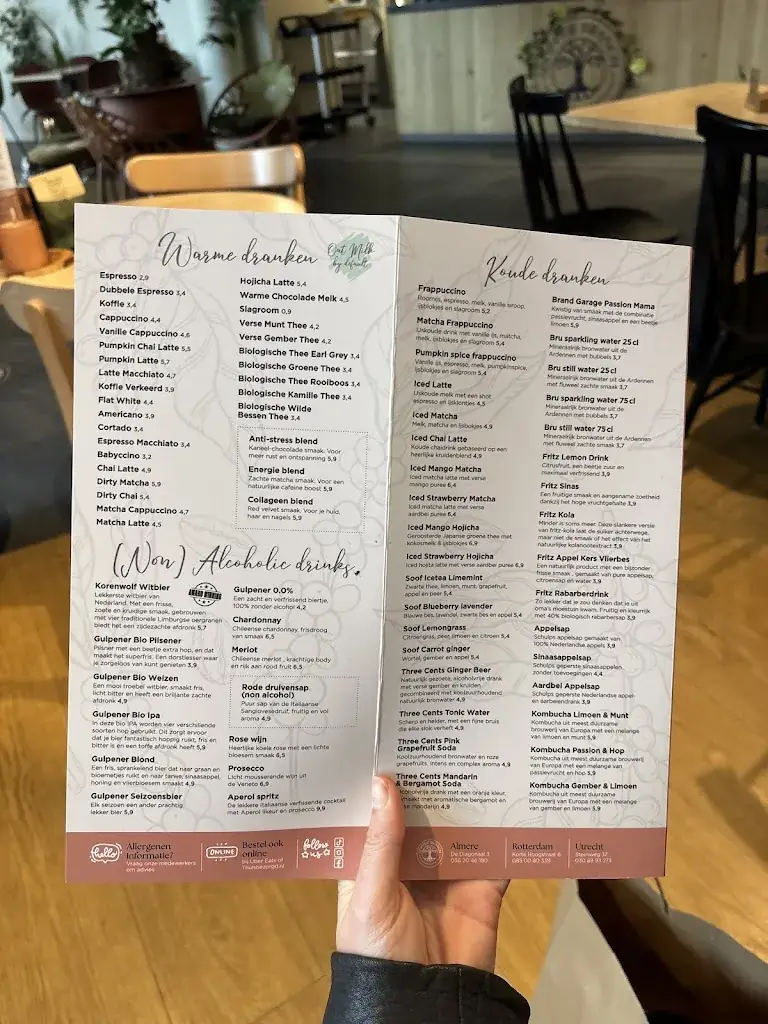 Warme dranken
Oat Milk
by default
Espresso 2,9
Dubbele Espresso 3,4
Koffie 3,4
Cappuccino 4,4
Vanille Cappuccino 4,6
Pumpkin Chai Latte 5,5
Pumpkin Latte 5,7
Latte Macchiato 4,7
Koffie Verkeerd 3,9
Flat White 4,4
Americano 3,9
Cortado 3,4
Espresso Macchiato 3,4
Babyccino 3,2
Chai Latte 4,9
Dirty Matcha 5,9
Dirty Chai 5,4
Matcha Cappuccino 4,7
Matcha Latte 4,5
Hojicha Latte 5,4
Warme Chocolade Melk 4,5
Slagroom 0,9
Verse Munt Thee 4,2
Verse Gember Thee 4,2
Biologische Thee Earl Grey 3,4
Biologische Groene Thee 3,4
Biologische Thee Rooiboos 3,4
Biologische Kamille Thee 3,4
Biologische Wilde
Bessen Thee 3,4
Anti-stress blend
Kaneel-chocolade smaak. Voor
meer rust en ontspanning 5,9
Energie blend
Zachte matcha smaak. Voor een
natuurlijke cafeïne boost 5,9
Collageen blend
Red velvet smaak. Voor je huid,
haar en nagels 5,9
(Non) Alcoholic drinks.
Korenwolf Witbier
Lekkerste witbier van
Nederland. Met een frisse,
zoete en kruidige smaak, gebrouwen
met vier traditionele Limburgse oergranen
biedt het een zijdezachte afdronk 5,7
AWARD WINNING
Gulpener Bio Pilsener
Pilsner met een beetje extra hop, en dat
maakt het superfris. Een dorstlesser waar
je zorgeloos van kunt genieten 3,9
Gulpener Bio Weizen
Een mooi troebel witbier, smaakt fris,
licht bitter en heeft een briljante zachte
afdronk 4,9
Gulpener Bio Ipa
In deze bio IPA worden vier verschillende
soorten hop gebruikt. Dit zorgt ervoor
dat je bier fantastisch hoppig ruikt, fris en
bitter is en een toffe afdronk heeft 5,9
Gulpener Blond
Een fris, sprankelend bier dat naar graan en
bloemetjes ruikt en naar tarwe, sinaasappel,
honing en vlierbloesem smaakt 4,9
Gulpener Seizoensbier
Elk seizoen een ander prachtig
lekker bier 5,9
Gulpener 0,0%
Een zacht en verfrissend biertje,
100% zonder alcohol 4,2
Chardonnay
Chileense chardonnay, frisdroog
van smaak 6,5
Merlot
Chileense merlot , krachtige body
en rijk aan rood fruit 6,5
Rode druivensap
(non alcohol)
Puur sap van de Italiaanse
Sangiovesedruif, fruitig en vol
aroma 4,9
Rose wijn
Heerlijke koele rose met een lichte
bloesem smaak 6,5
Prosecco
Licht mousserende wijn uit
de Veneto 6,9
Aperol spritz
De lekkere italiaanse verfissende cocktail
met Aperol likeur en prosecco 9,9
hello!
Allergenen
Informatie?
Vraag onze medewerkers
om advies
ONLINE
Bestel ook
online
bij Uber Eats of
Thuisbezorgd.nl
follow
us
Koude dranken
Frappuccino
Roomijs, espresso, melk, vanille siroop,
ijsblokjes en slagroom 5,2
Matcha Frappuccino
IJskoude drank met vanille ijs, matcha,
melk, ijsblokjes en slagroom 5,4
Pumpkin spice frappuccino
Vanille ijs, espresso, melk, pumpkinspice,
ijsblokjes en slagroom 5,4
Iced Latte
IJskoude melk met een shot
espresso en ijsklontjes 4,5
Iced Matcha
Melk, matcha en ijsblokjes 4,9
Iced Chai Latte
Koude chaidrink gebaseerd op een
heerlijke kruidenblend 4,9
Iced Mango Matcha
Iced matcha latte met verse
mango puree 6,4
Iced Strawberry Matcha
Iced matcha latte met verse
aardbei puree 5,4
Iced Mango Hojicha
Geroosterde Japanse groene thee met
kokosmelk & ijsblokjes 6,9
Iced Strawberry Hojicha
Iced hojita latte met verse aardbei puree 6,9
Soof Icetea Limemint
Zwarte thee, limoen, munt, grapefruit,
appel en peer 5,4
Soof Blueberry lavender
Blauwe bes, lavendel, zwarte bes en appel 5,4
Soof Lemongrass
Citroengras, peer, limoen en citroen 5,4
Soof Carrot ginger
Wortel, gember en appel 5,4
Three Cents Ginger Beer
Natuurlijk gezoete, alcoholvrije drank
met verse gember en kruiden
gecombineerd met koolzuurhoudend
natuurlijk bronwater 4,9
Three Cents Tonic Water
Scherp en helder, met een fijne bruis
die elke slok verheft 4,9
Three Cents Pink
Grapefruit Soda
Koolzuurhoudend bronwater en roze
grapefruits, intens en complex aroma 4,9
Three Cents Mandarin
& Bergamot Soda
drank met een oranje kleur,
smaakt met aromatische bergamot en
mandarijn 4,9
Brand Garage Passion Mama
Kwistig van smaak met de combinatie
passievrucht, sinaasappel en een beetje
limoen 5,9
Bru sparkling water 25 cl
Mineraalrijk bronwater uit de
Ardennen met bubbels 3,7
Bru still water 25 cl
Mineraalrijk bronwater uit de Ardennen
met fluweel zachte smaak 3,7
Bru sparkling water 75 cl
Mineraalrijk bronwater uit de
Ardennen met bubbels 3,7
Bru still water 75 cl
Mineraalrijk bronwater uit de Ardennen
met fluweel zachte smaak 3,7
Fritz Lemon Drink
Citrusfruit, een beetje zuur en
maximaal verfrissend 3,9
Fritz Sinas
Een fruitige smaak en aangename zoetheid
dankzij het hoge vruchtgehalte 3,9
Fritz Kola
Minder is soms meer. Deze slankere versie
van fritz-kola laat de suiker achterwege,
maar niet de smaak of het effect van het
natuurlijke kolanootextract 3,9
Fritz Appel Kers Vlierbes
Een natuurlijk product met een bijzonder
frisse smaak , gemaakt van pure appelsap,
citroensap en water 3,9
Fritz Rabarberdrink
Zo lekker dat je zou denken dat ie uit
oma's moestuin kwam. Fruitig en kleurrijk
met 40% biologisch rabarbersap 3,9
Appelsap
Schulps appelsap gemaakt van
100% Nederlandse appels 3,9
Sinaasappelsap
Schulps geperste sinaasappelen,
zonder toevoegingen 4,4
Aardbei Appelsap
Schulps geperste Nederlandse appel-
en aarbeiendrank 3,9
Kombucha Limoen & Munt
Kombucha uit meest duurzame
brouwerij van Europa met een melange
van limoen en munt 5,9
Kombucha Passion & Hop
Kombucha uit meest duurzame
brouwerij van Europa met een melange van
passievrucht en hop 5,9
Kombucha Gember & Limoen
Kombucha uit meest duurzame
brouwerij van Europa met een melange
van gember en limoen 5,9
Almere
De Diagonaal 3
036 20 46 180
Rotterdam
Korte Hoogstraat 6
085 00 80 339
Utrecht
Steenweg 37
030 69 93 273